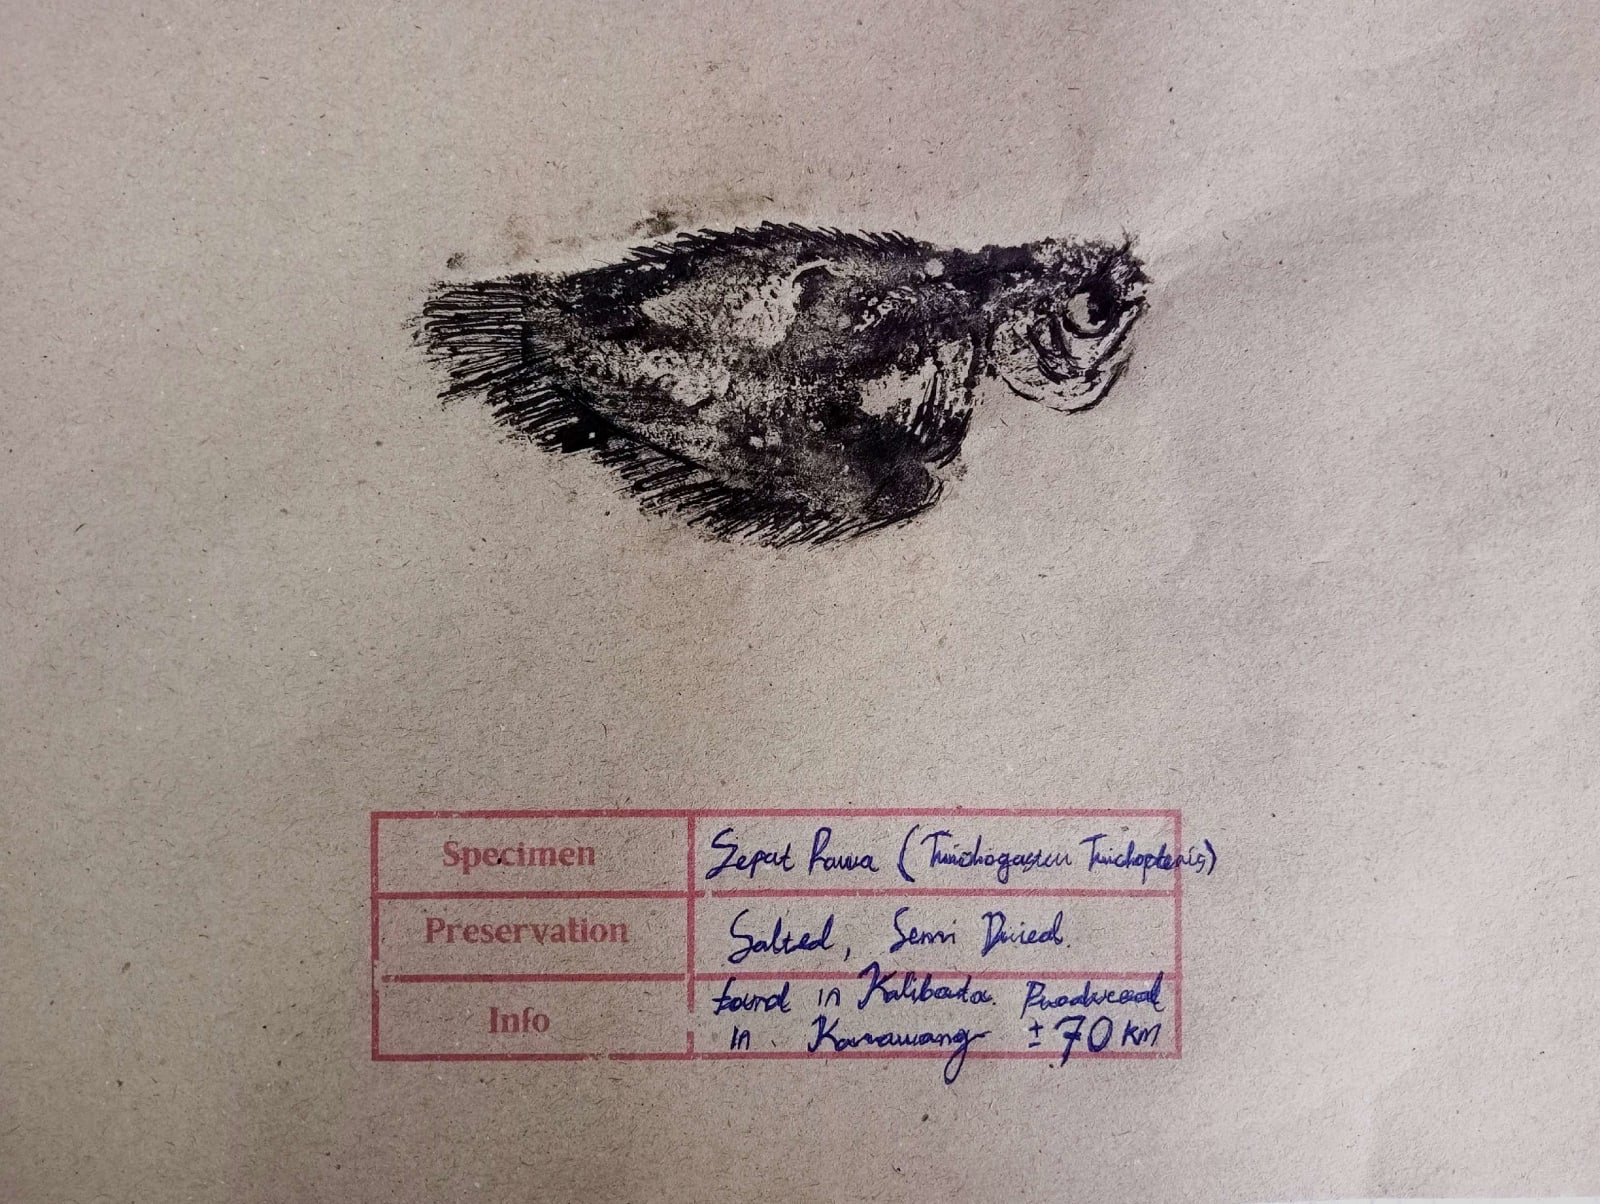 Specimen Sepat Rawa (Trichogaster Trichopteris)
Preservation Salted, Semi Dried.
Info found in Kalibata. Produced
in Karawang ± 70 km